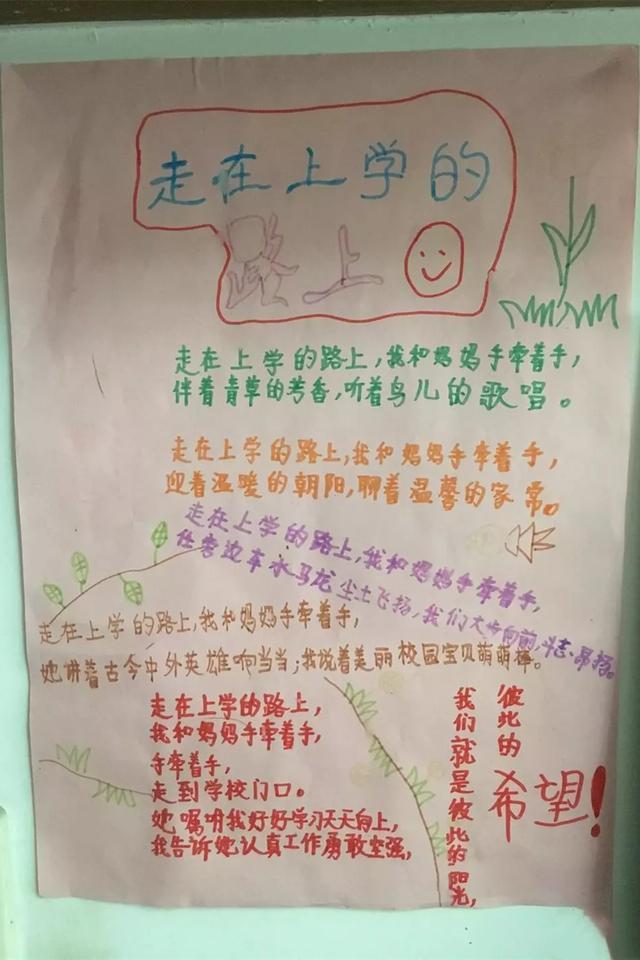 走在上学的
路上
走在上学的路上,我和妈妈手牵着手,
伴着青草的芳香,听着鸟儿的歌唱。
走在上学的路上,我和妈妈手牵着手,
迎着温暖的朝阳,聊着温馨的家常。
走在上学的路上,我和妈妈手牵着手,
任旁边车水马龙尘土飞扬,我们大步向前,斗志昂扬。
走在上学的路上,我和妈妈手牵着手,
她讲着古今中外英雄响当当;我说着美丽校园宝贝萌萌棒。
走在上学的路上,
我和妈妈手牵着手,
手牵着手,
走到学校门口。
她嘱咐我好好学习天天向上,
我告诉她认真工作勇敢坚强,
我们就是彼此的阳光,
彼此的
希望!